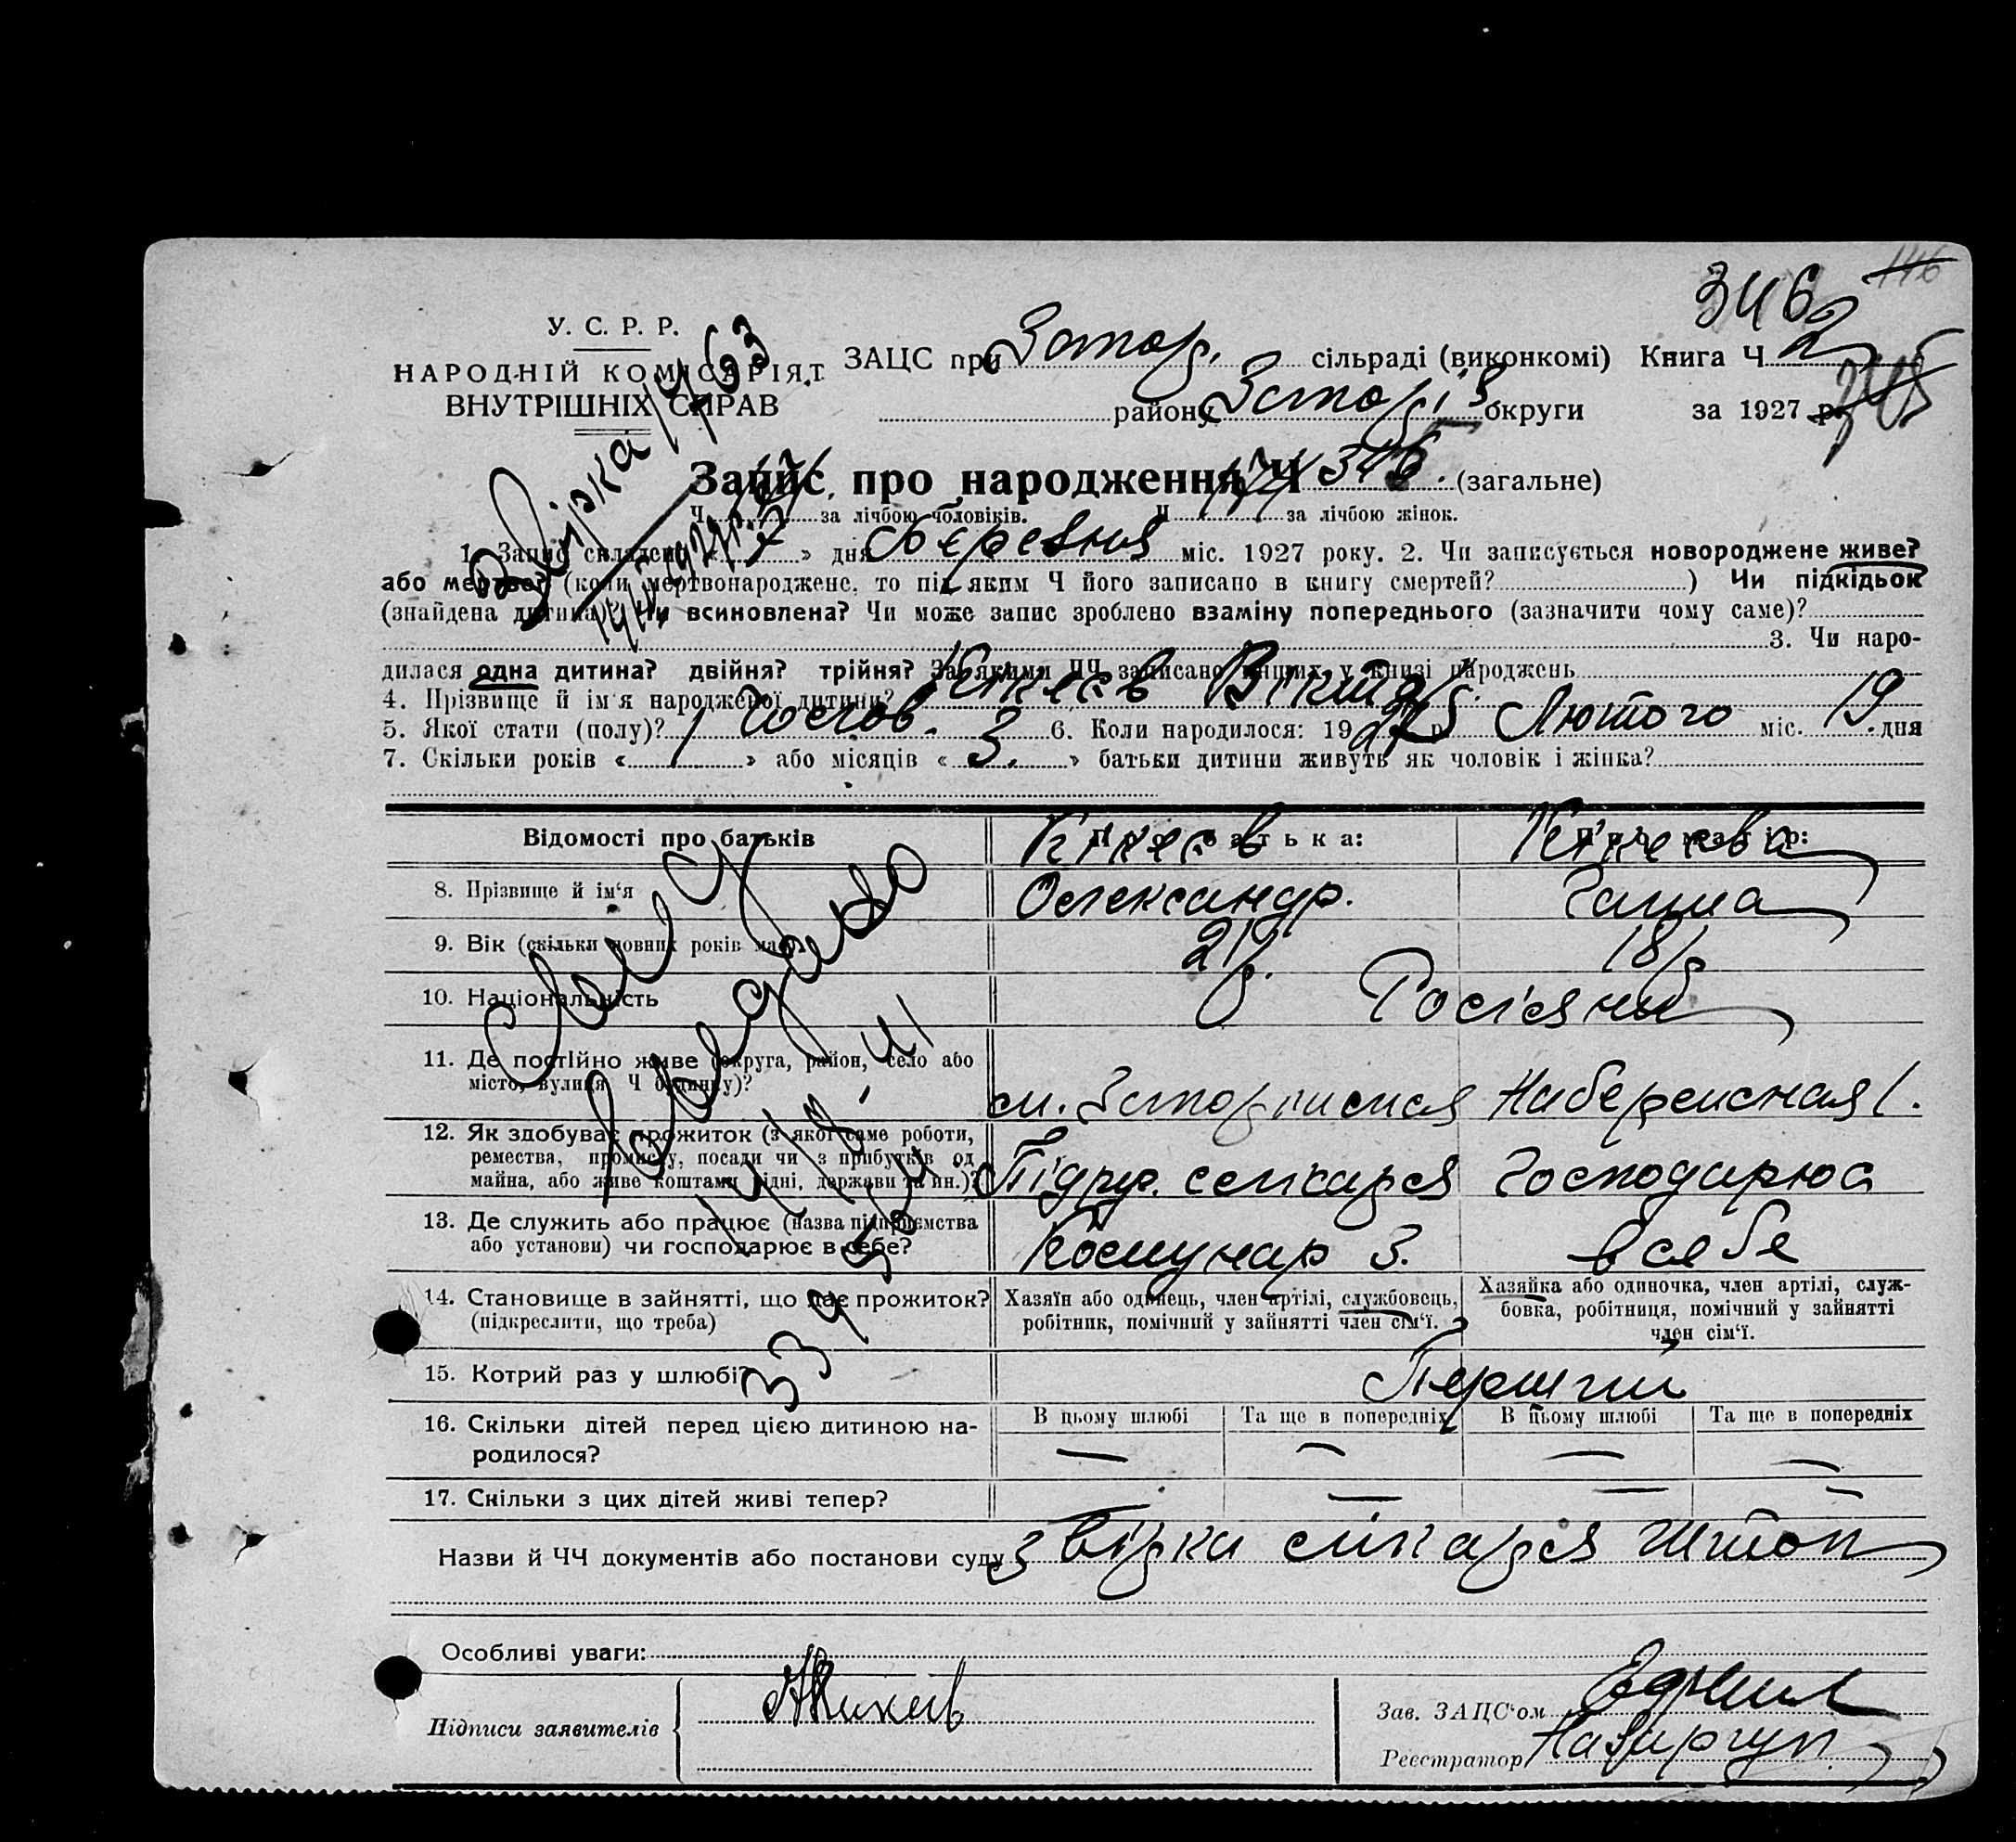 346
146
У. С. Р. Р.
НАРОДНІЙ КОМІСАРІЯТ
ВНУТРІШНІХ СПРАВ
ЗАЦС при Запор. сільраді (виконкомі) Книга Ч 2
району Запоріз округи за 1927 р.
Запис про народження Ч 346. (загальне)
Ч за лічбою чоловіків. Ч за лічбою жінок.
1. Запис складено « 7 » дня березня міс. 1927 року. 2. Чи записується новороджене живе?
або мертве? (коли мертвонароджене, то під яким Ч його записано в книгу смертей? ) Чи підкідьок
(знайдена дитина)? Чи всиновлена? Чи може запис зроблено взаміну попереднього (зазначити чому саме)?
3. Чи наро-
дилася одна дитина? двійня? трійня? За якими ЧЧ записано инших у книзі народжень
4. Прізвище й ім'я народженої дитини? Віктор
5. Якої стати (полу)? чолов. 6. Коли народилося: 1927 р. Лютого міс. 19 дня
7. Скільки років « 1 » або місяців « 3. » батьки дитини живуть як чоловік і жінка?
Відомості про батьків Про батька: Про матір:
8. Прізвище й ім'я Олександр. Ганна
9. Вік (скільки повних років має) 21 18
10. Національність Росіяни
11. Де постійно живе (округа, район, село або
місто, вулиця, Ч будинку)? Набережная 1.
12. Як здобуває прожиток (з якої саме роботи,
ремества, промислу, посади чи з прибутків од
майна, або живе коштами рідні, держави та ин.)? Господарює
13. Де служить або працює (назва підприємства
або установи) чи господарює в себе? Комунар З. в себе
14. Становище в зайнятті, що дає прожиток?
(підкреслити, що треба)
Хазяїн або одинець, член артілі, службовець,
робітник, помічний у зайнятті член сім'ї.
Хазяйка або одиночка, член артілі, служ-
бовка, робітниця, помічний у зайнятті
член сім'ї.
15. Котрий раз у шлюбі? Перший
16. Скільки дітей перед цією дитиною на-
родилося?
В цьому шлюбі Та ще в попередніх В цьому шлюбі Та ще в попередніх
— — — —
17. Скільки з цих дітей живі тепер? — — — —
Назви й ЧЧ документів або постанови суду звірки лікаря
Особливі уваги:
Підписи заявителів
Зав. ЗАЦС'ом
Реєстратор